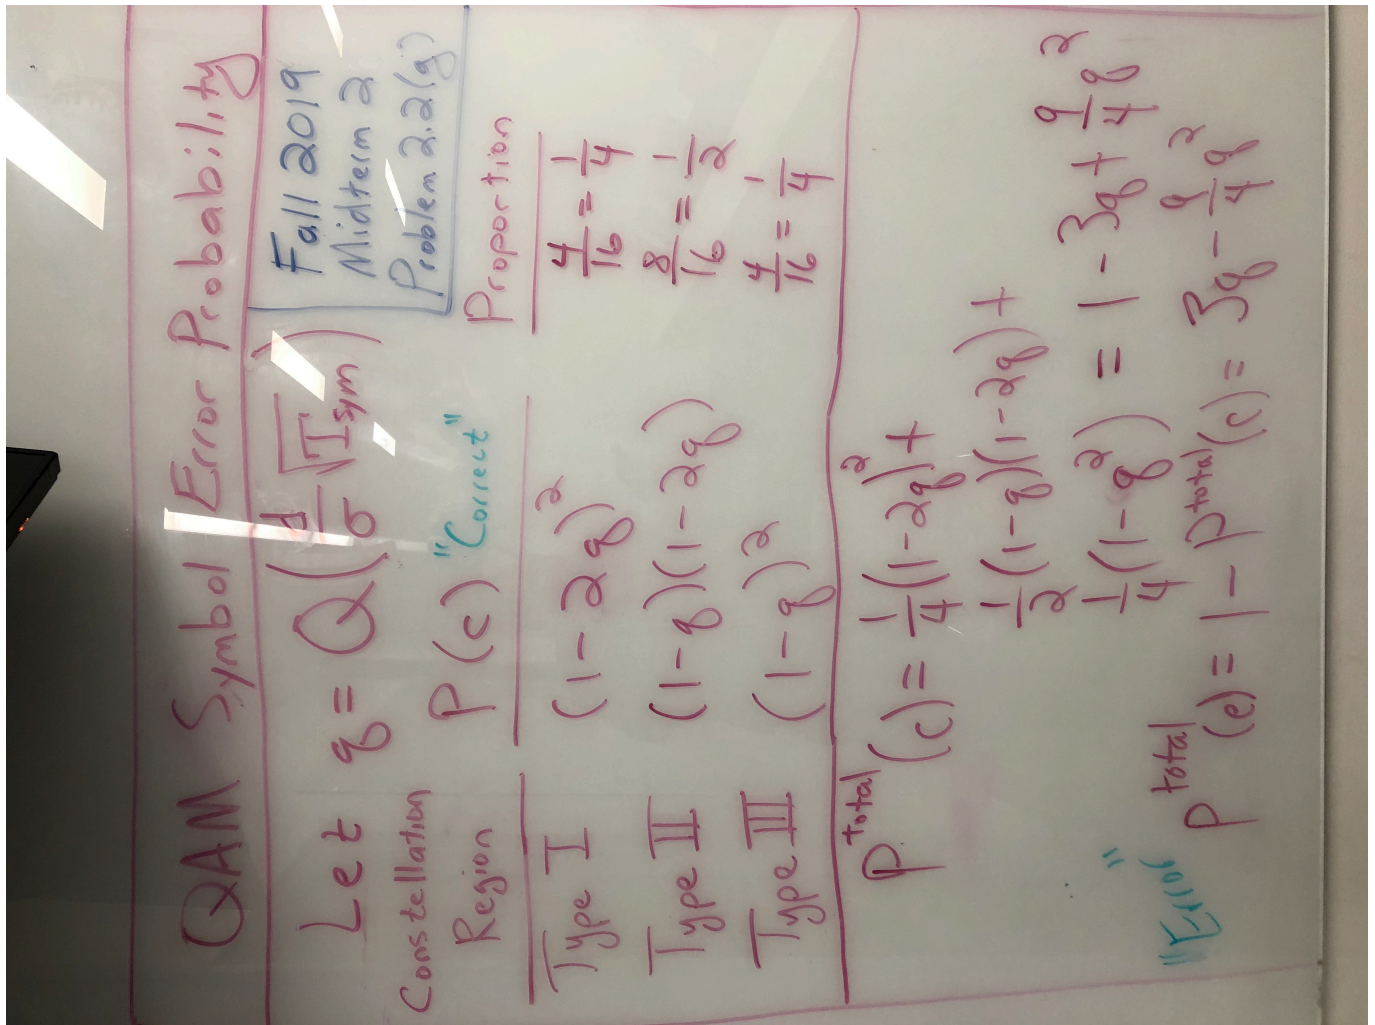 QAM Symbol Error Probability
Let q = Q(d/σ √T_sym)
Fall 2019
Midterm 2
Problem 2.2(g)
Constellation Region
P(c) "Correct"
Proportion
Type I (1-2q)² 4/16 = 1/4
Type II (1-q)(1-2q) 8/16 = 1/2
Type III (1-q)² 4/16 = 1/4
P^total(c) = 1/4(1-2q)² +
1/2(1-q)(1-2q) +
1/4(1-q²) = 1 - 3q + 9/4 q²
"Error" P^total(e) = 1 - P^total(c) = 3q - 9/4 q²